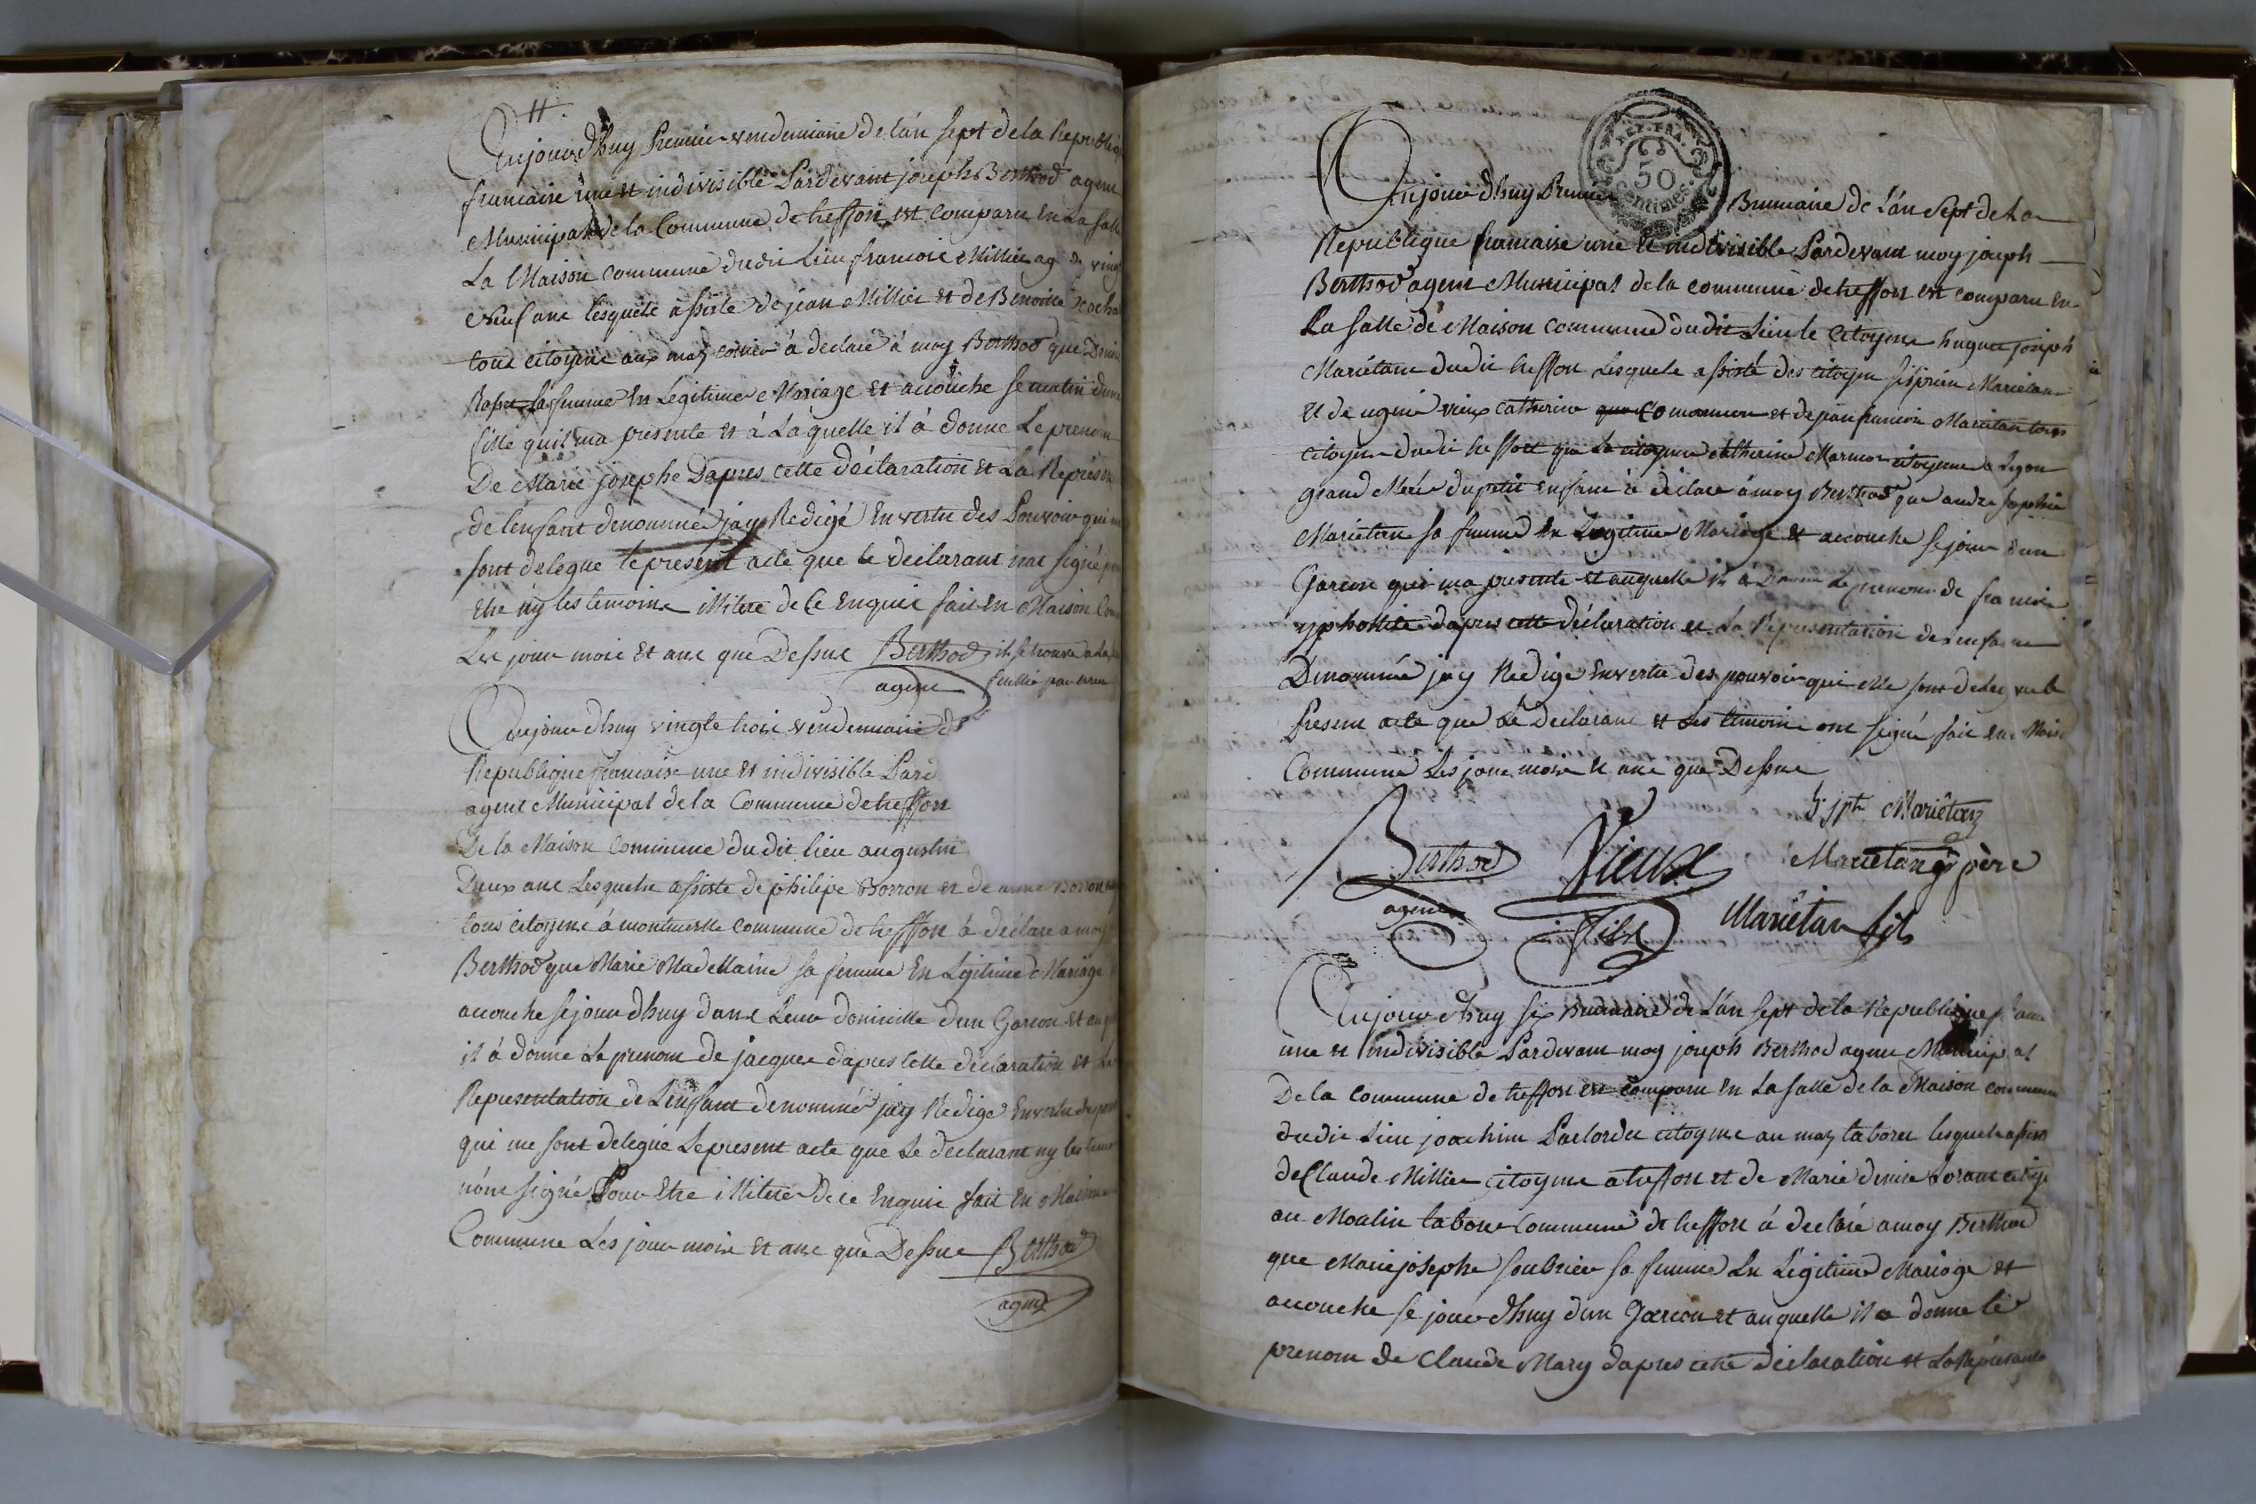 #.
Aujourdhuy Premier vendemiaire de lán sept de la Republi
francaise une et indivisible Pardevant joseph Berthod agent
Municipal de la Commune de treffort est comparu En La salle
La Maison commune dudit Lieu francois Millier ag de vingt
neuf ans lesquele assisté de jean Millier et de Benoite
tous citoyens aux à declaré à moy Berthod que Denise
sa femme En Legitime Mariage Et accouche se matin dune
fille quil ma presente et à Láquelle il á donné Le prenom
De Marie josephe Dapres cette déclaration et La Represen
de lenfant denommé jay Redigé En vertu des Pouvoir qui me
sont delegue le present acte que le déclarant nat signé p
Etre ny les temoins illiteré de Ce Enquie fait En Maison Com
Les jour mois Et ans que Dessus Berthod il se trouve a la
agent feullie par erreu
Aujourdhuy vingte trois vendemiaire de
Republique francaise une et indivisible Pard
agent Municipal de la Commune de treffort
De la Maison Commune du dit lieu augustin
Deux ans Lesquele assisté de philipe Borron et de anne Borron
tous citoyens á montmerle commune de treffort á déclare a moy
Berthod que Marie Madellaine sa femme En Légitime Mariage
accouche sejourdhuy dans Leur domicille dun Garcon et auq
il á donne Le prenom de jacques dapres cette déclaration et La
Representation de Lenfant denommé jay Redigé En vertu des pou
qui me sont delegué Le present acte que Le declarant ny les temoi
nónt signé Pour Etre illiteré de ce Enquie fait En Maison
Commune Les jour mois Et ans que Dessus Berthod
agent
REP. FRA.
50
Centimes.
Aujourdhuy Premier Brumaire de Lán Sept de La
Republique francaise une et indivisible Pardevant moy joseph
Berthod agent Municipal de la commune de treffort est comparu En
La salle de Maison commune du dit Lieu le Citoyen hugue joseph
Mariétan dudit treffort Lesquele assisté des citoyen Mariétan
et de vieux Catherine et de jean francois Mariétan tous
citoyen dudit treffort que La citoyenne Catherine Marmon citoyenne a Lyon
grand Mere du petit enfant à déclaré à moy Berthod que andre sophie
Mariétan sa femme En Legitime Mariage et accouche sejour dun
Garcon quil ma presente et auquelle il á donné Le prenom de francois
dapres cette déclaration et La Representation de Lenfant
Denommé jay Redigé En vertu des pouvoir qui Me sont delegué le
Present acte que Le Déclarant et Les temoins ont signé fait En Maiso
Commune Les jour mois et ans que Dessus
h. jph. Mariétan
Berthod Vieux Mariétan gd père
agent fils Mariétan fils
Aujourdhuy six Brumaire de Lán sept de la Republique franc
une et indivisible Pardevant moy joseph Berthod agent Municipal
De la Commune de treffort est comparu En La salle de la Maison commune
dudit Lieu joachim citoyen au lesquele assisté
de Claude Millier citoyen a treffort et de Marie denise Loran
au Moulin Commune de treffort á declaré a moy Berthod
que Marie josephe soubrier sa femme En Légitime Mariage et
accouche se jourdhuy dun Garcon et auquelle il a donné le
prenom de Claude Mary dapres cette déclaration et La Représenta